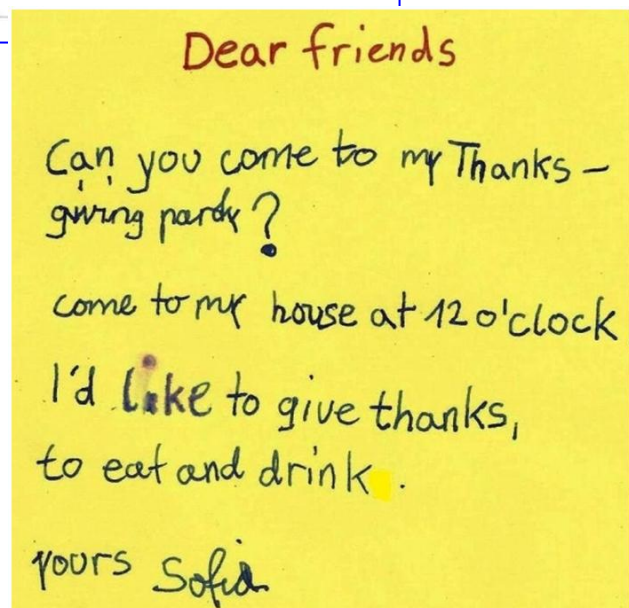 Dear friends
Can you come to my Thanks-
giving pardy?
come to my house at 12 o'clock
I'd like to give thanks,
to eat and drink.
yours Sofia